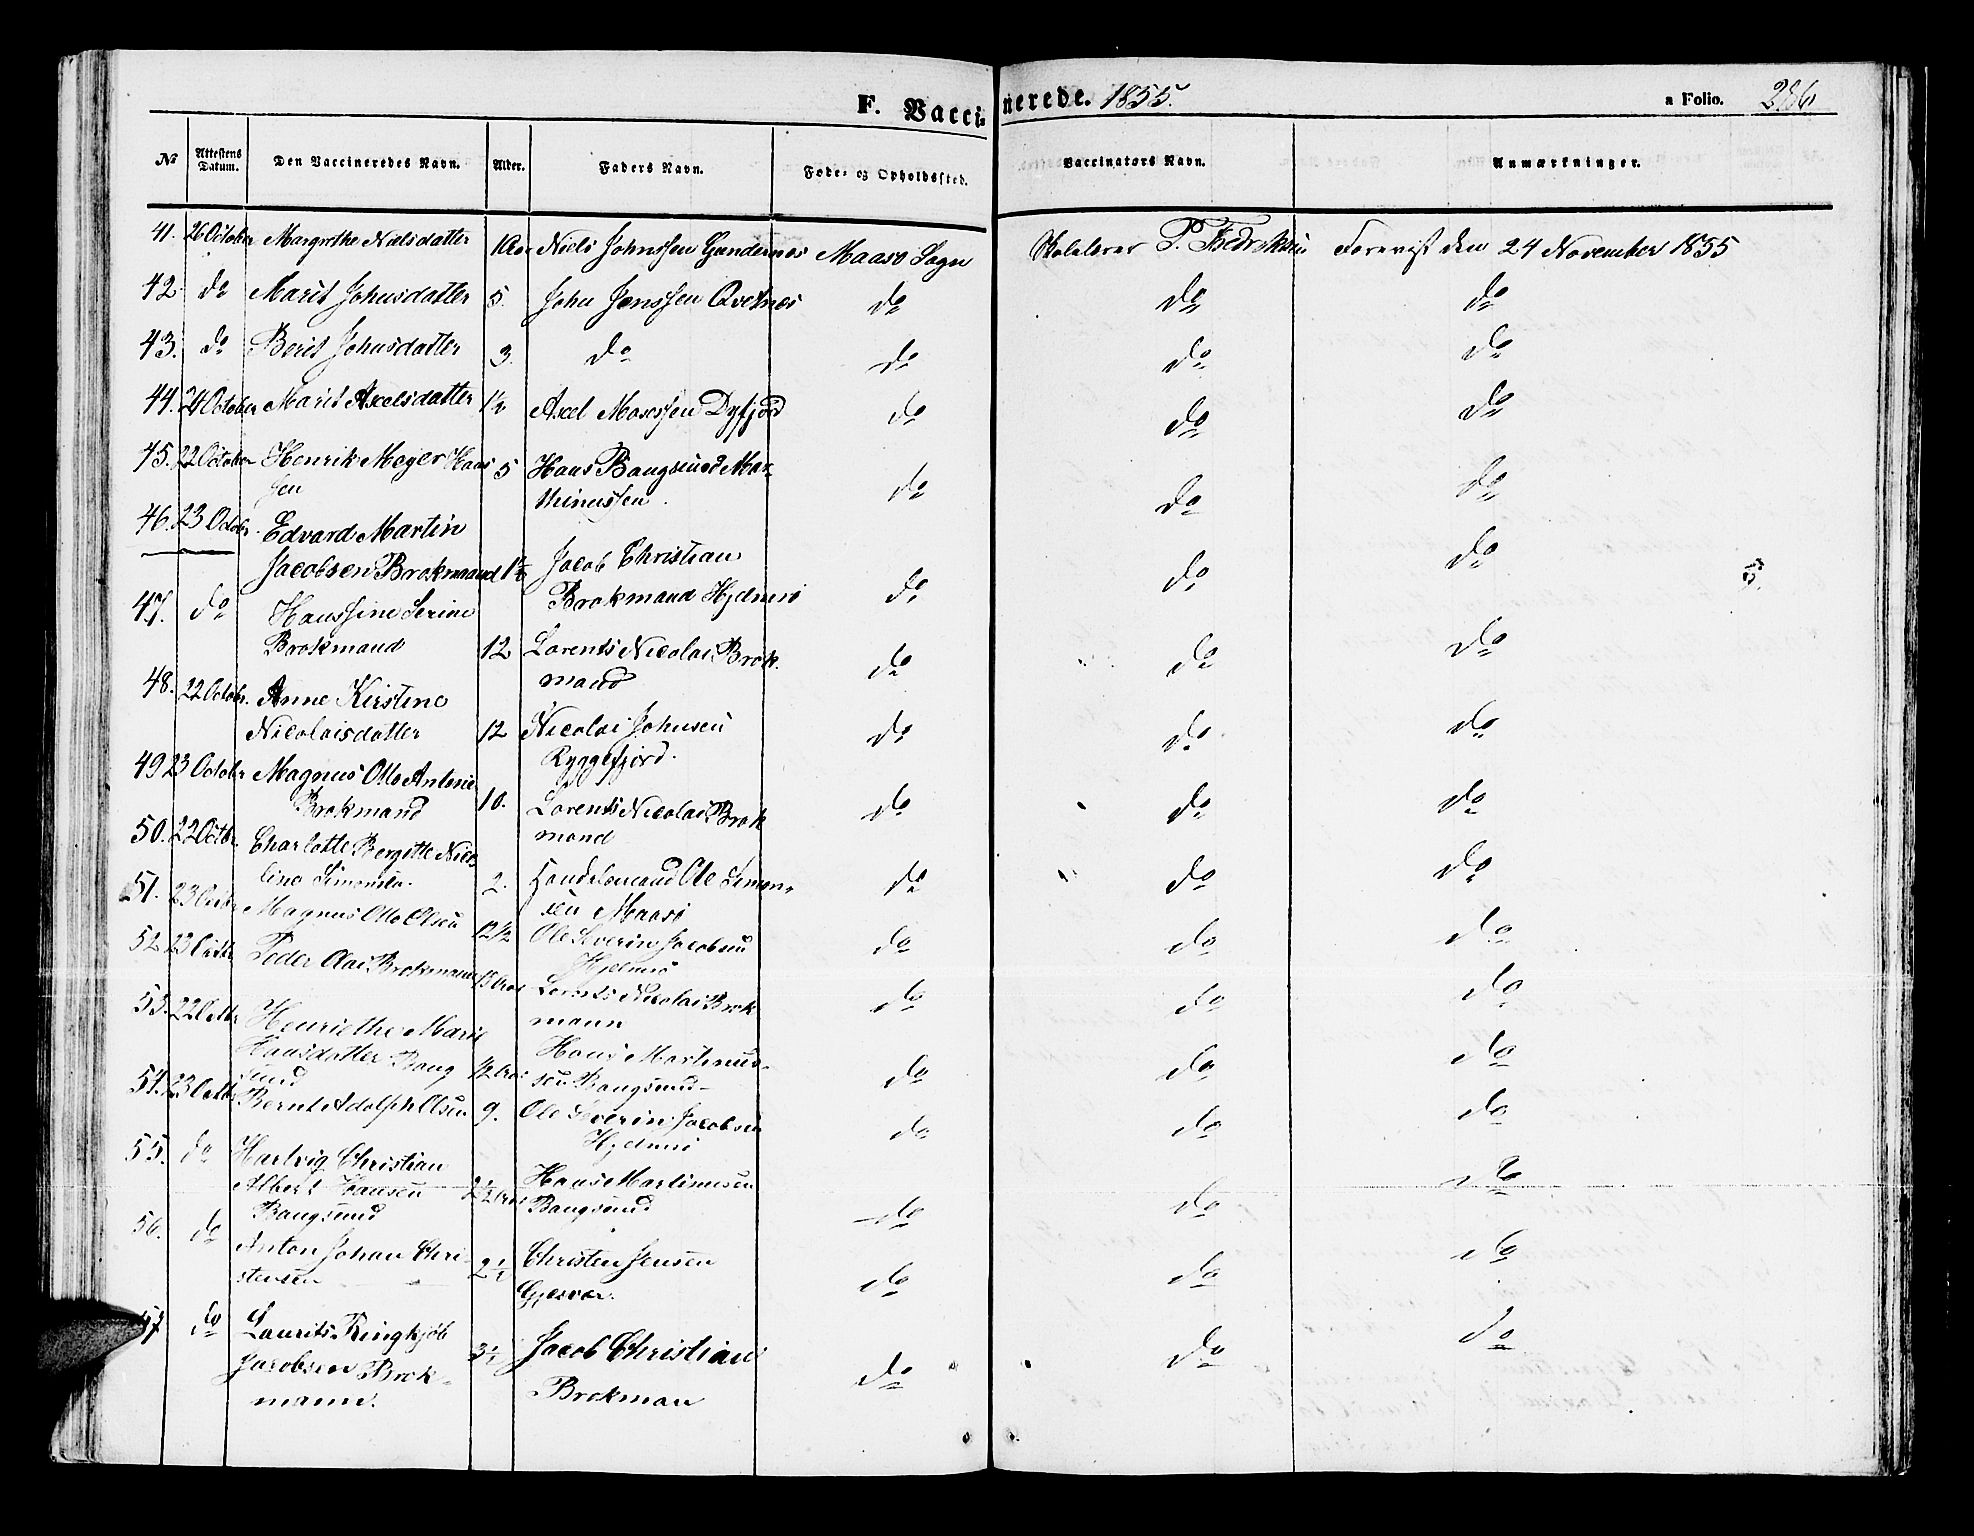 F. Vaccinerede. 1855. a Folio. 286
No Attestens Datum. Den Vaccineredes Navn. Alder. Faders Navn. Føde- og Opholdssted. Vaccinators Navn. Anmærkninger.
41. 26 October Margrethe Nielsdatter Niels Johnssen Maasø Sogn Skolelærer P. Forevist den 24 November 1855
42. do Marit Johnsdatter 5. John Jenssen Qvetnes do do do
43. do Berit Johnsdatter 3. do do do do
44. 24 October Marit Axelsdatter 1½ Axel Mosessen Dyfjord do do do
45. 22 October Henrik Meyer Hans 5 Hans Bangsund Mar-
sen thinussen do do do
46. 23 Octobr. Edvard Martin
Jacobsen Brokmand 1½ Jacob Christian
Brokmand Hjelmsø do do do
47. do Hanssine Serine
Brokmand 12 Lorents Nicolai Brok-
mand do do do
48. 22 Octobr. Anne Kirstine
Nicolaisdatter 12 Nicolai Johnsen
Ryggefjord. do do do
49 23 Octobr Magnus Otto Antonie
Brokmand 10. Lorents Nicolai Brok
mand do do do
50. 22 Octbr. Charlotte Bergitte Nico
line Simonsen. 2. Handelsmand Ole Simon-
sen Maasø do do do
51. 23 Octbr Magnus Otto Olsen 12½ Ole Severin Jacobsen
Hjelmsø do do do
52. 23 Octbr Peder Olai Brokmann Lorents Nicolai Brok
mann do do do
53. 22 Octbr Henriethe Marie
Hansdatter Bang
sund ½ Aar Hans Martinus-
sen Bangsund- do do do
54. 23 Octbr Bernt Adolph Olsen 9. Ole Severin Jacobsen
Hjelmsø do do do
55. do Hartvig Christian
Albert Hansen
Bangsund 2½ Aar Hans Martinusen
Bangsund do do do
56. do Anton Johan Chri-
stensen 2½ Christen Jensen
Gjesvær. do do do
57 do Laurits Ringkjøb
Jacobsen Brok-
mann. 3½ Jacob Christian
Brokman do do do